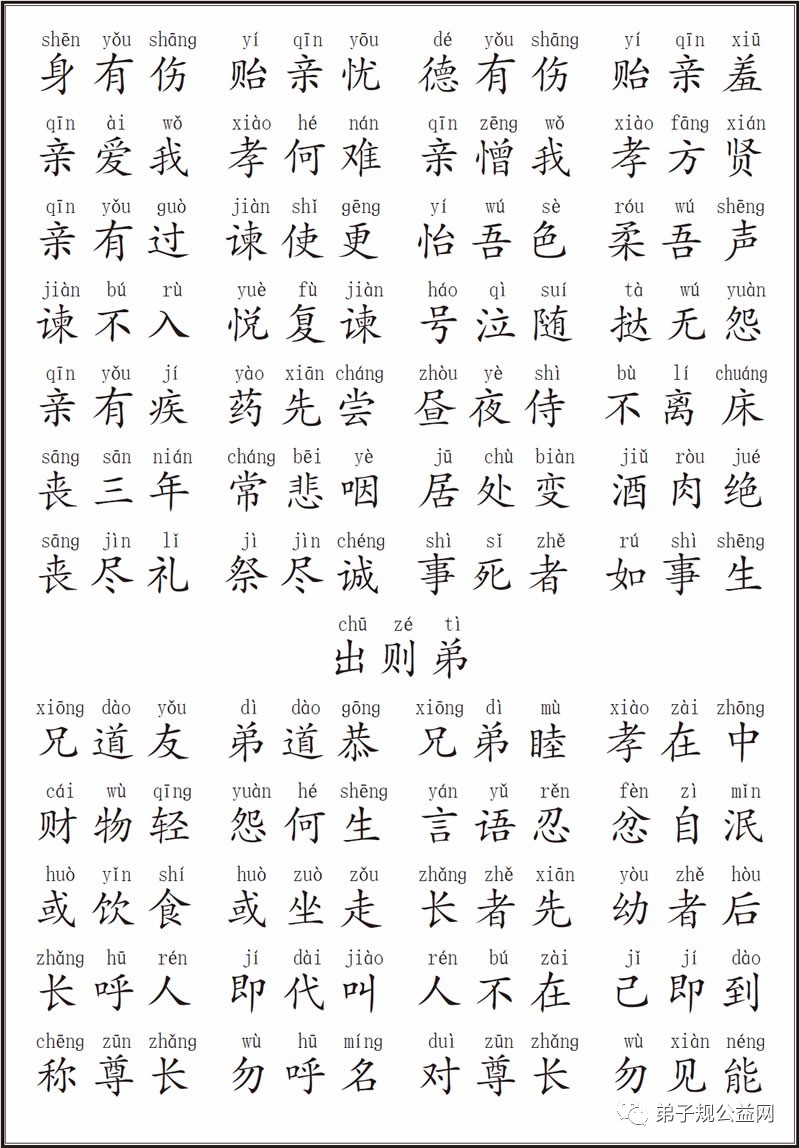 shēn yǒu shāng yí qīn yōu dé yǒu shāng yí qīn xiū
身有伤 贻亲忧 德有伤 贻亲羞
qīn ài wǒ xiào hé nán qīn zēng wǒ xiào fāng xián
亲爱我 孝何难 亲憎我 孝方贤
qīn yǒu guò jiàn shǐ gēng yí wú sè róu wú shēng
亲有过 谏使更 怡吾色 柔吾声
jiàn bú rù yuè fù jiàn háo qì suí tà wú yuàn
谏不入 悦复谏 号泣随 挞无怨
qīn yǒu jí yào xiān cháng zhòu yè shì bù lí chuáng
亲有疾 药先尝 昼夜侍 不离床
sāng sān nián cháng bēi yè jū chù biàn jiǔ ròu jué
丧三年 常悲咽 居处变 酒肉绝
sāng jìn lǐ jì jìn chéng shì sǐ zhě rú shì shēng
丧尽礼 祭尽诚 事死者 如事生
chū zé tì
出则弟
xiōng dào yǒu dì dào gōng xiōng dì mù xiào zài zhōng
兄道友 弟道恭 兄弟睦 孝在中
cái wù qīng yuàn hé shēng yán yǔ rěn fèn zì mǐn
财物轻 怨何生 言语忍 忿自泯
huò yǐn shí huò zuò zǒu zhǎng zhě xiān yòu zhě hòu
或饮食 或坐走 长者先 幼者后
zhǎng hū rén jí dài jiào rén bú zài jǐ jí dào
长呼人 即代叫 人不在 己即到
chēng zūn zhǎng wù hū míng duì zūn zhǎng wù xiàn néng
称尊长 勿呼名 对尊长 勿见能
弟子规公益网